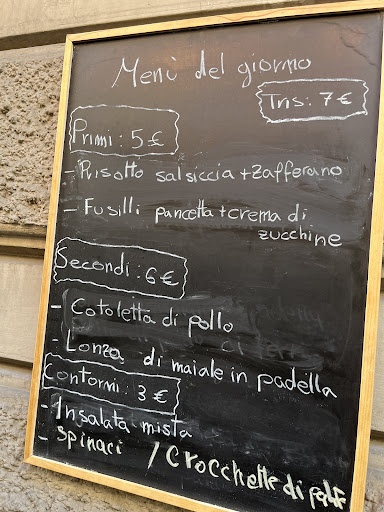 Menù del giorno
Tris: 7€
Primi: 5€
- Risotto salsiccia + zafferano
- Fusilli pancetta + crema di
zucchine
Secondi: 6€
- Cotoletta di pollo
- Lonza di maiale in padella
Contorni: 3€
- Insalata mista
- spinaci / crocchette di